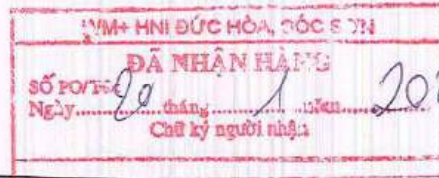 VM+ HNI ĐỨC HÒA, SÓC SƠN
ĐÃ NHẬN HÀNG
SỐ PO/
Ngày 20 tháng 1 năm 20
Chữ ký người nhận